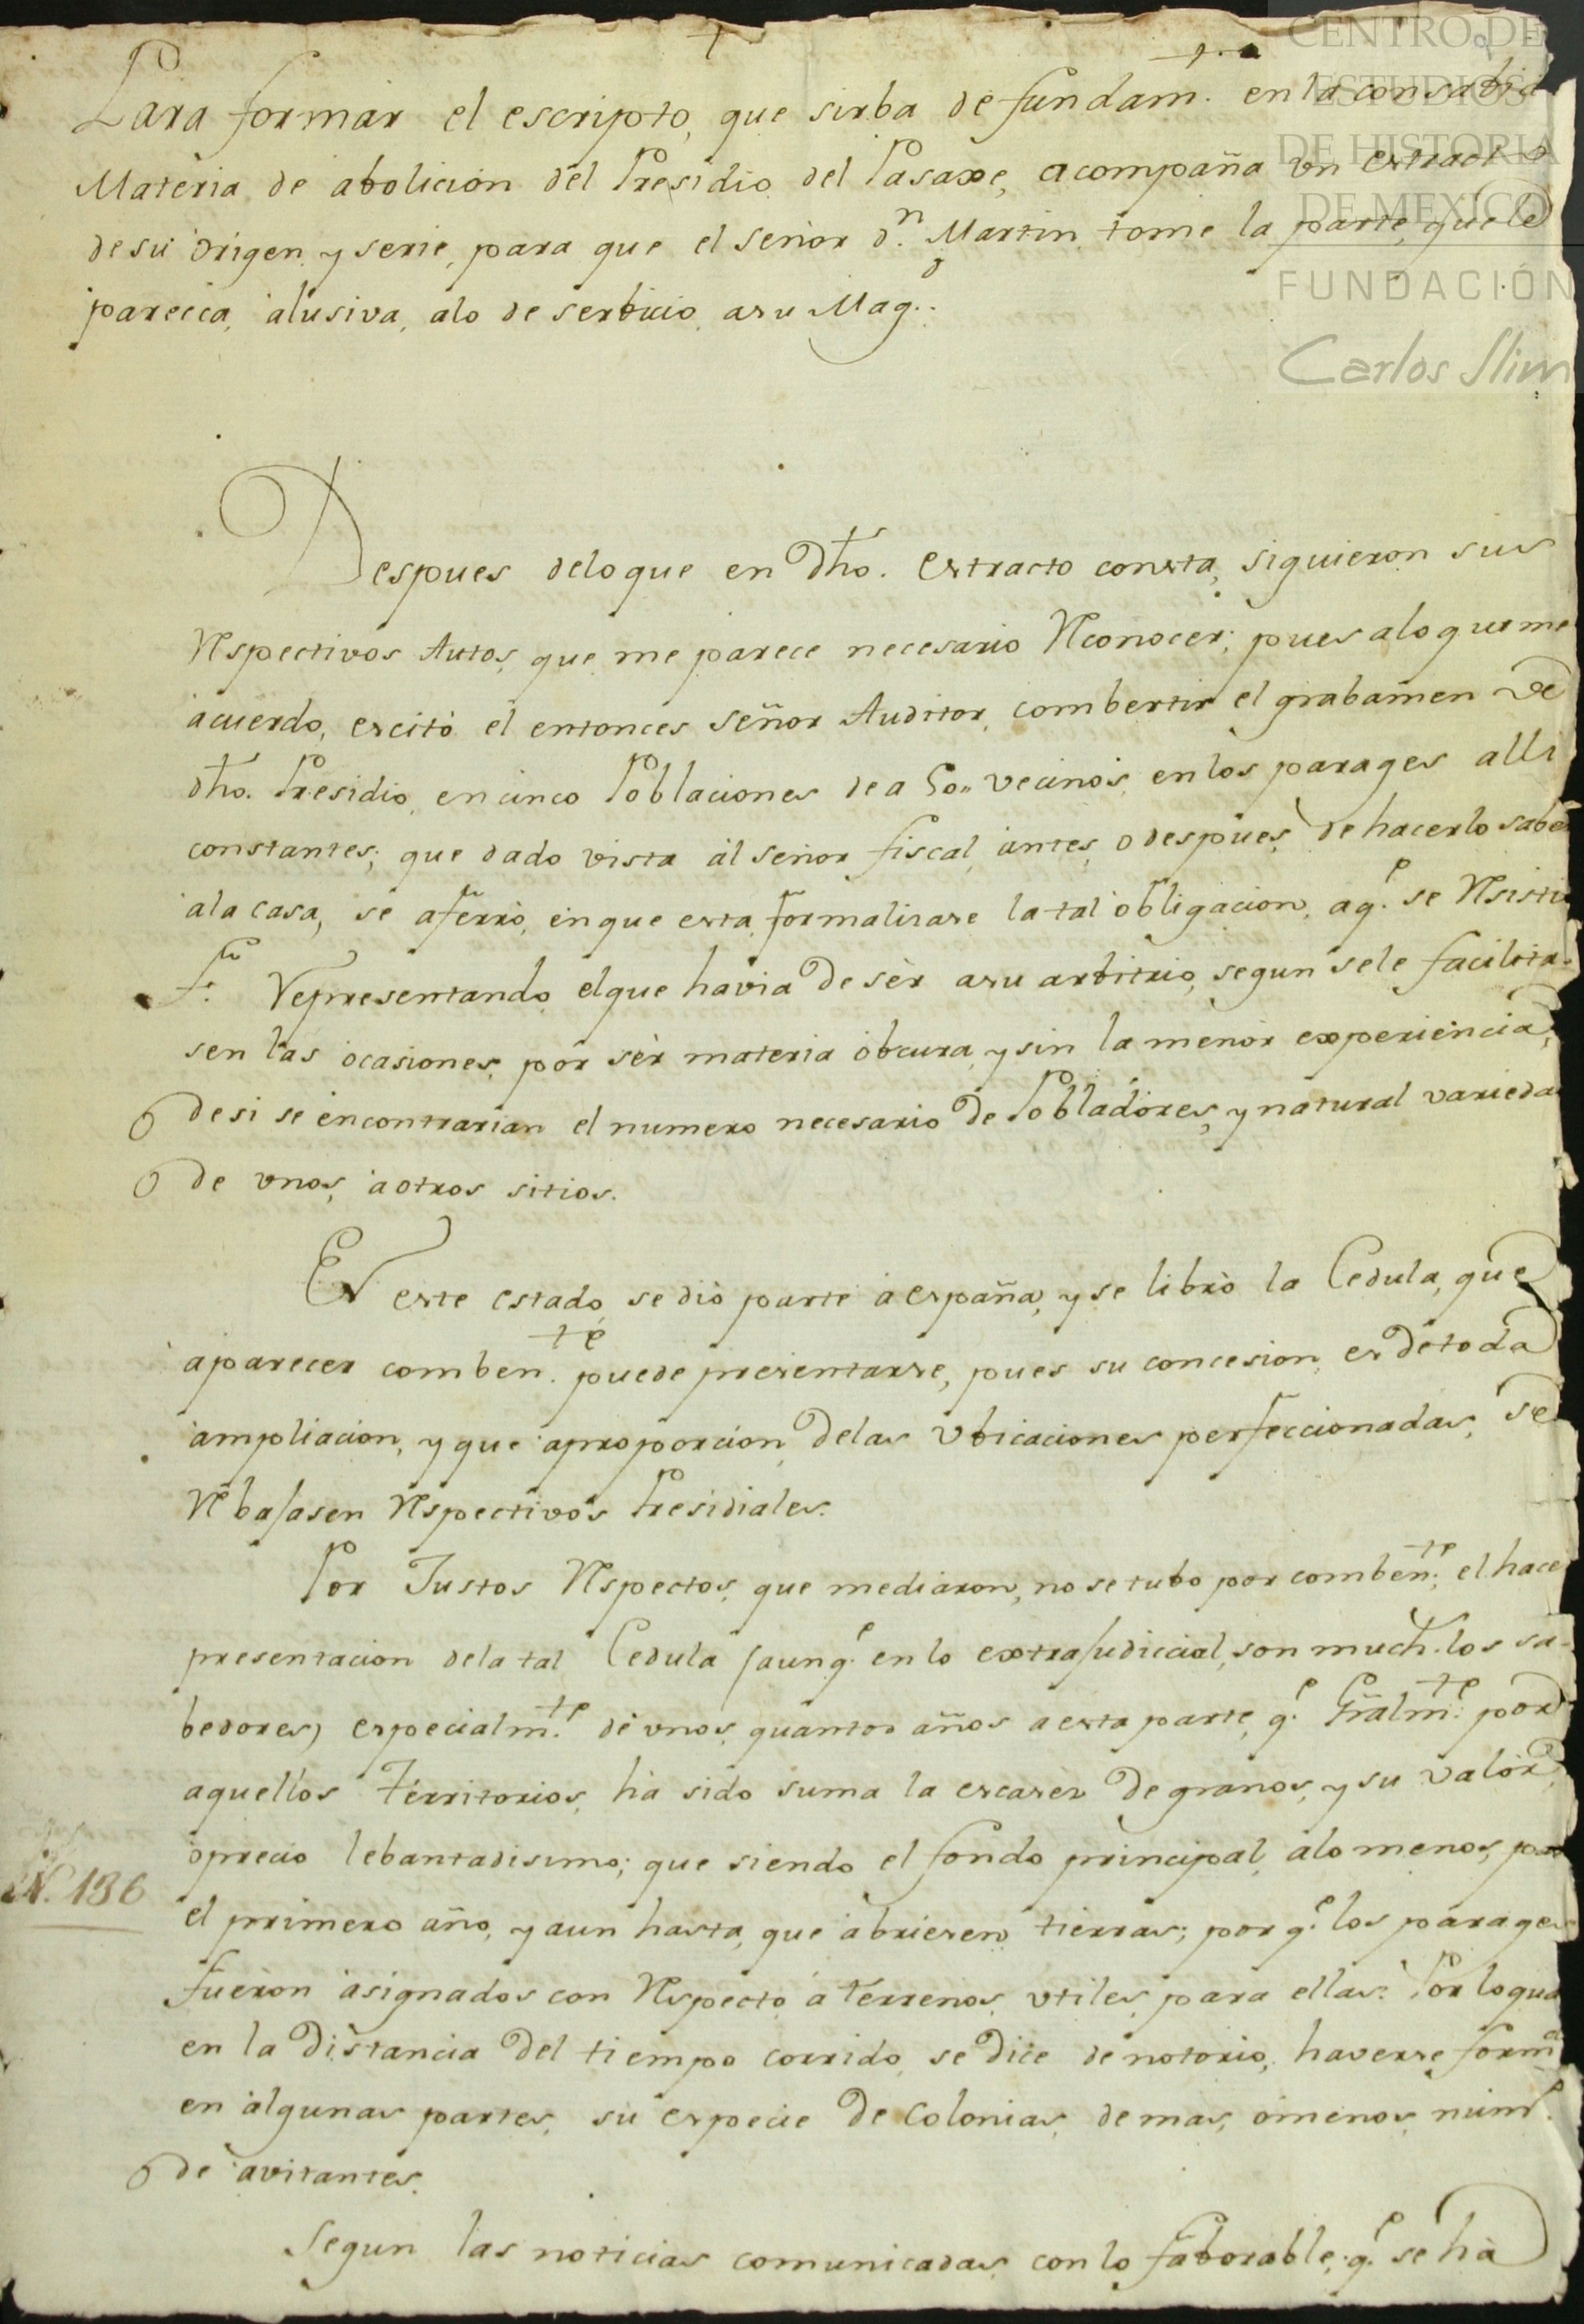 CENTRO DE
ESTUDIOS
DE HISTORIA
DE MEXICO
FUNDACIÓN
Carlos Slim
Para formar el escripto, que sirba de fundam.to en la consabid
Materia de abolicion del Presidio del Pasaxe, acompaña vn extracto
de su origen y serie, para que el señor d.n Martin tome la parte, que le
parecca, alusiva, alo de serbicio asu Mag.d
Despues deloque en dho. extracto consta, siguieron sus
Respectivos Autos, que me parece necesario Reconocer; pues alo que me
acuerdo, excitò el entonces señor Auditor, combertir el grabamen de
dho. Presidio, en cinco Poblaciones de a 50,, vecinos, en los parages alli
constantes; que dado vista al señor fiscal, antes, o despues, de hacerlo sabe
ala casa, se aferrò, en que esta formalisase la tal obligacion, aq.e se Resisti
Representando, elque havia de sèr asu arbitrio, segun sele facilita-
sen las ocasiones, por sèr materia obcura, y sin la menor experiencia,
de si se encontrarian el numero necesario de Pobladores, y natural varieda
de vnos, a otros sitios.
En este estado, se diò parte a españa, y se librò la Cedula, que
aparecer comben.te puede presentarse, pues su concesion, es de toda
ampliacion, y que aproporcion, delas Vbicaciones perfeccionadas, se
Rebajasen Respectivos Presidiales.
Por Justos Respectos, que mediaron, no se tubo por comben.te, el hace
presentacion dela tal Cedula (aunq.e en lo extrajudiccial, son much.s los sa-
bedores) especialm.te de vnos, quantos años a esta parte, q.e Grâlm.te por
aquellos Territorios, ha sido suma la escases de granos, y su valor,
òprecio lebantadisimo; que siendo el fondo principal, alo menos, pa
N. 136
el primero año, y aun hasta, que abriesen tierras; porq.e los parages
fueron asignados con Respecto a terrenos vtiles para ellas: Por loqua
en la distancia del tiempo corrido, se dice de notorio, haverse form
en algunas partes, su especie de colonias, de mas, omenos, num
de avitantes.
Segun las noticias comunicadas, con lo faborable, q.e se ha